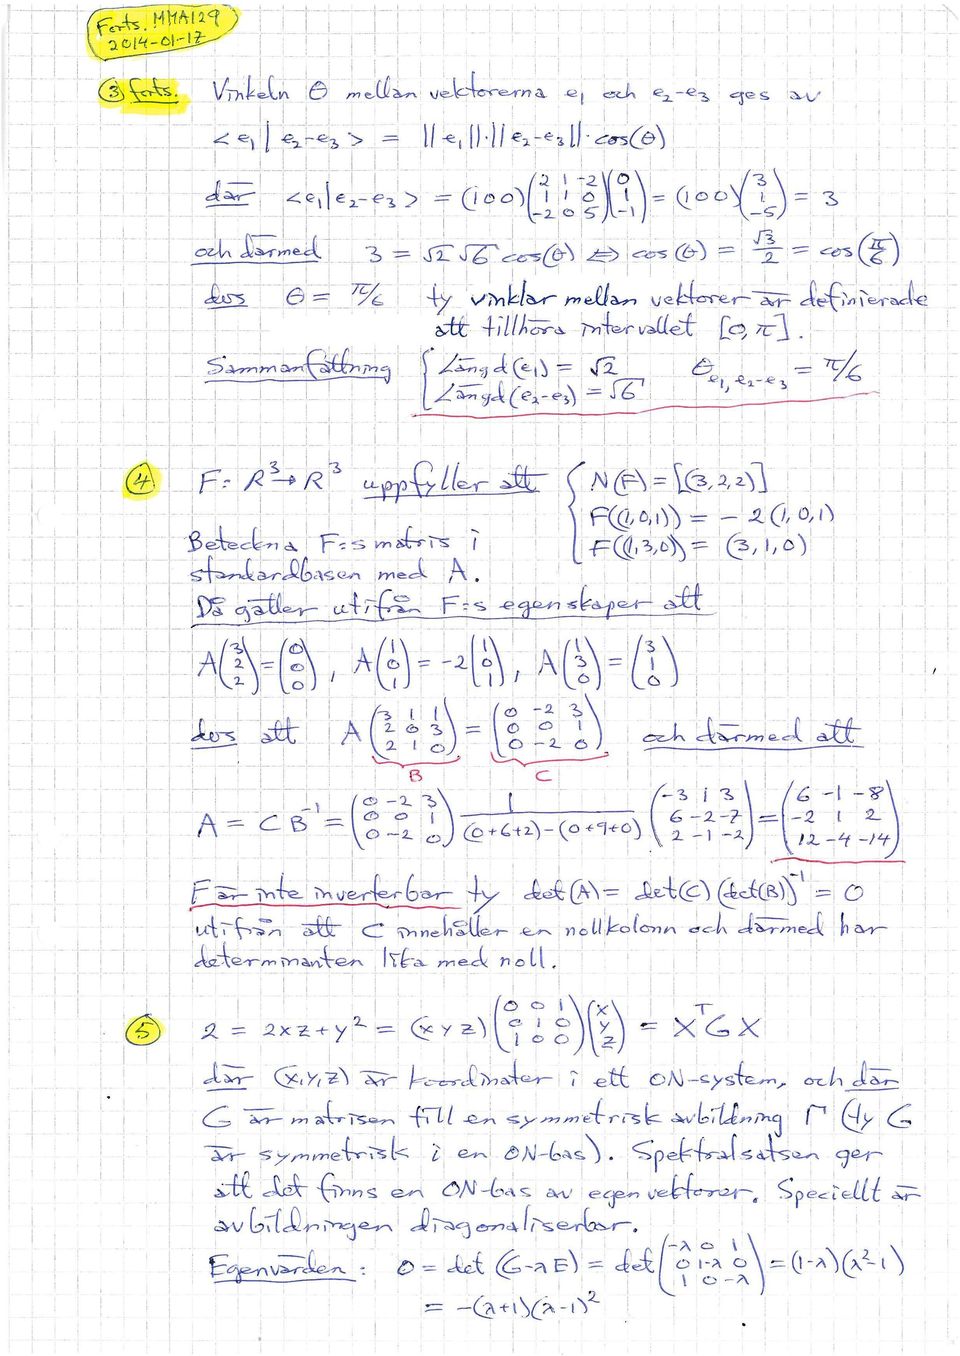 Forts. MMA129
2014-01-17
③ forts. Vinkeln θ mellan vektorerna e₁ och e₂-e₃ ges av
<e₁|e₂-e₃> = ||e₁||·||e₂-e₃||·cos(θ)
där <e₁|e₂-e₃> = (1 0 0)(2 1 -2; 1 1 0; -2 0 5)(0; 1; -1) = (1 0 0)(3; 1; -5) = 3
och därmed 3 = √2 √6 cos(θ) ⇔ cos(θ) = √3/2 = cos(π/6)
dvs θ = π/6 ty vinklar mellan vektorer är definierade
att tillhöra intervallet [0, π].
Sammanfattning { Längd(e₁) = √2 θ e₁, e₂-e₃ = π/6
Längd(e₂-e₃) = √6
④ F: R³→R³ uppfyller att { N(F) = [(3,2,2)]
F((1,0,1)) = -2(1,0,1)
Beteckna F:s matris i F((1,3,0)) = (3,1,0)
standardbasen med A.
Då gäller utifrån F:s egenskaper att
A(3; 2; 2) = (0; 0; 0), A(1; 0; 1) = -2(1; 0; 1), A(1; 3; 0) = (3; 1; 0)
dvs att A(3 1 1; 2 0 3; 2 1 0) = (0 -2 3; 0 0 1; 0 -2 0) och därmed att
B C
A = CB⁻¹ = (0 -2 3; 0 0 1; 0 -2 0) 1/((0+6+2)-(0+9+0)) (-3 1 3; 6 -2 -7; 2 -1 -2) = (6 -1 -8; -2 1 2; 12 -4 -14)
F är inte inverterbar ty det(A) = det(C)(det(B))⁻¹ = 0
utifrån att C innehåller en nollkolonn och därmed har
determinanten lika med noll.
⑤ 2 = 2xz+y² = (x y z)(0 0 1; 0 1 0; 1 0 0)(x; y; z) = XᵀGX
där (x,y,z) är koordinater i ett ON-system, och där
G är matrisen till en symmetrisk avbildning Γ (ty G
är symmetrisk i en ON-bas). Spektralsatsen ger
att det finns en ON-bas av egenvektorer. Speciellt är
avbildningen diagonaliserbar.
Egenvärden: 0 = det(G-λE) = det(-λ 0 1; 0 1-λ 0; 1 0 -λ) = (1-λ)(λ²-1)
= -(λ+1)(λ-1)²